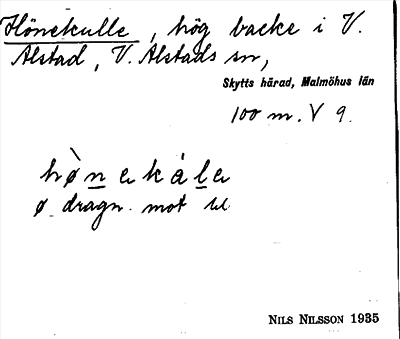 Hönekulle, hög backe i V.
Alstad, V. Alstads sn,
Skytts härad, Malmöhus län
100 m. V 9.
hø̀nekålе
ø dragn. mot
NILS NILSSON 1935